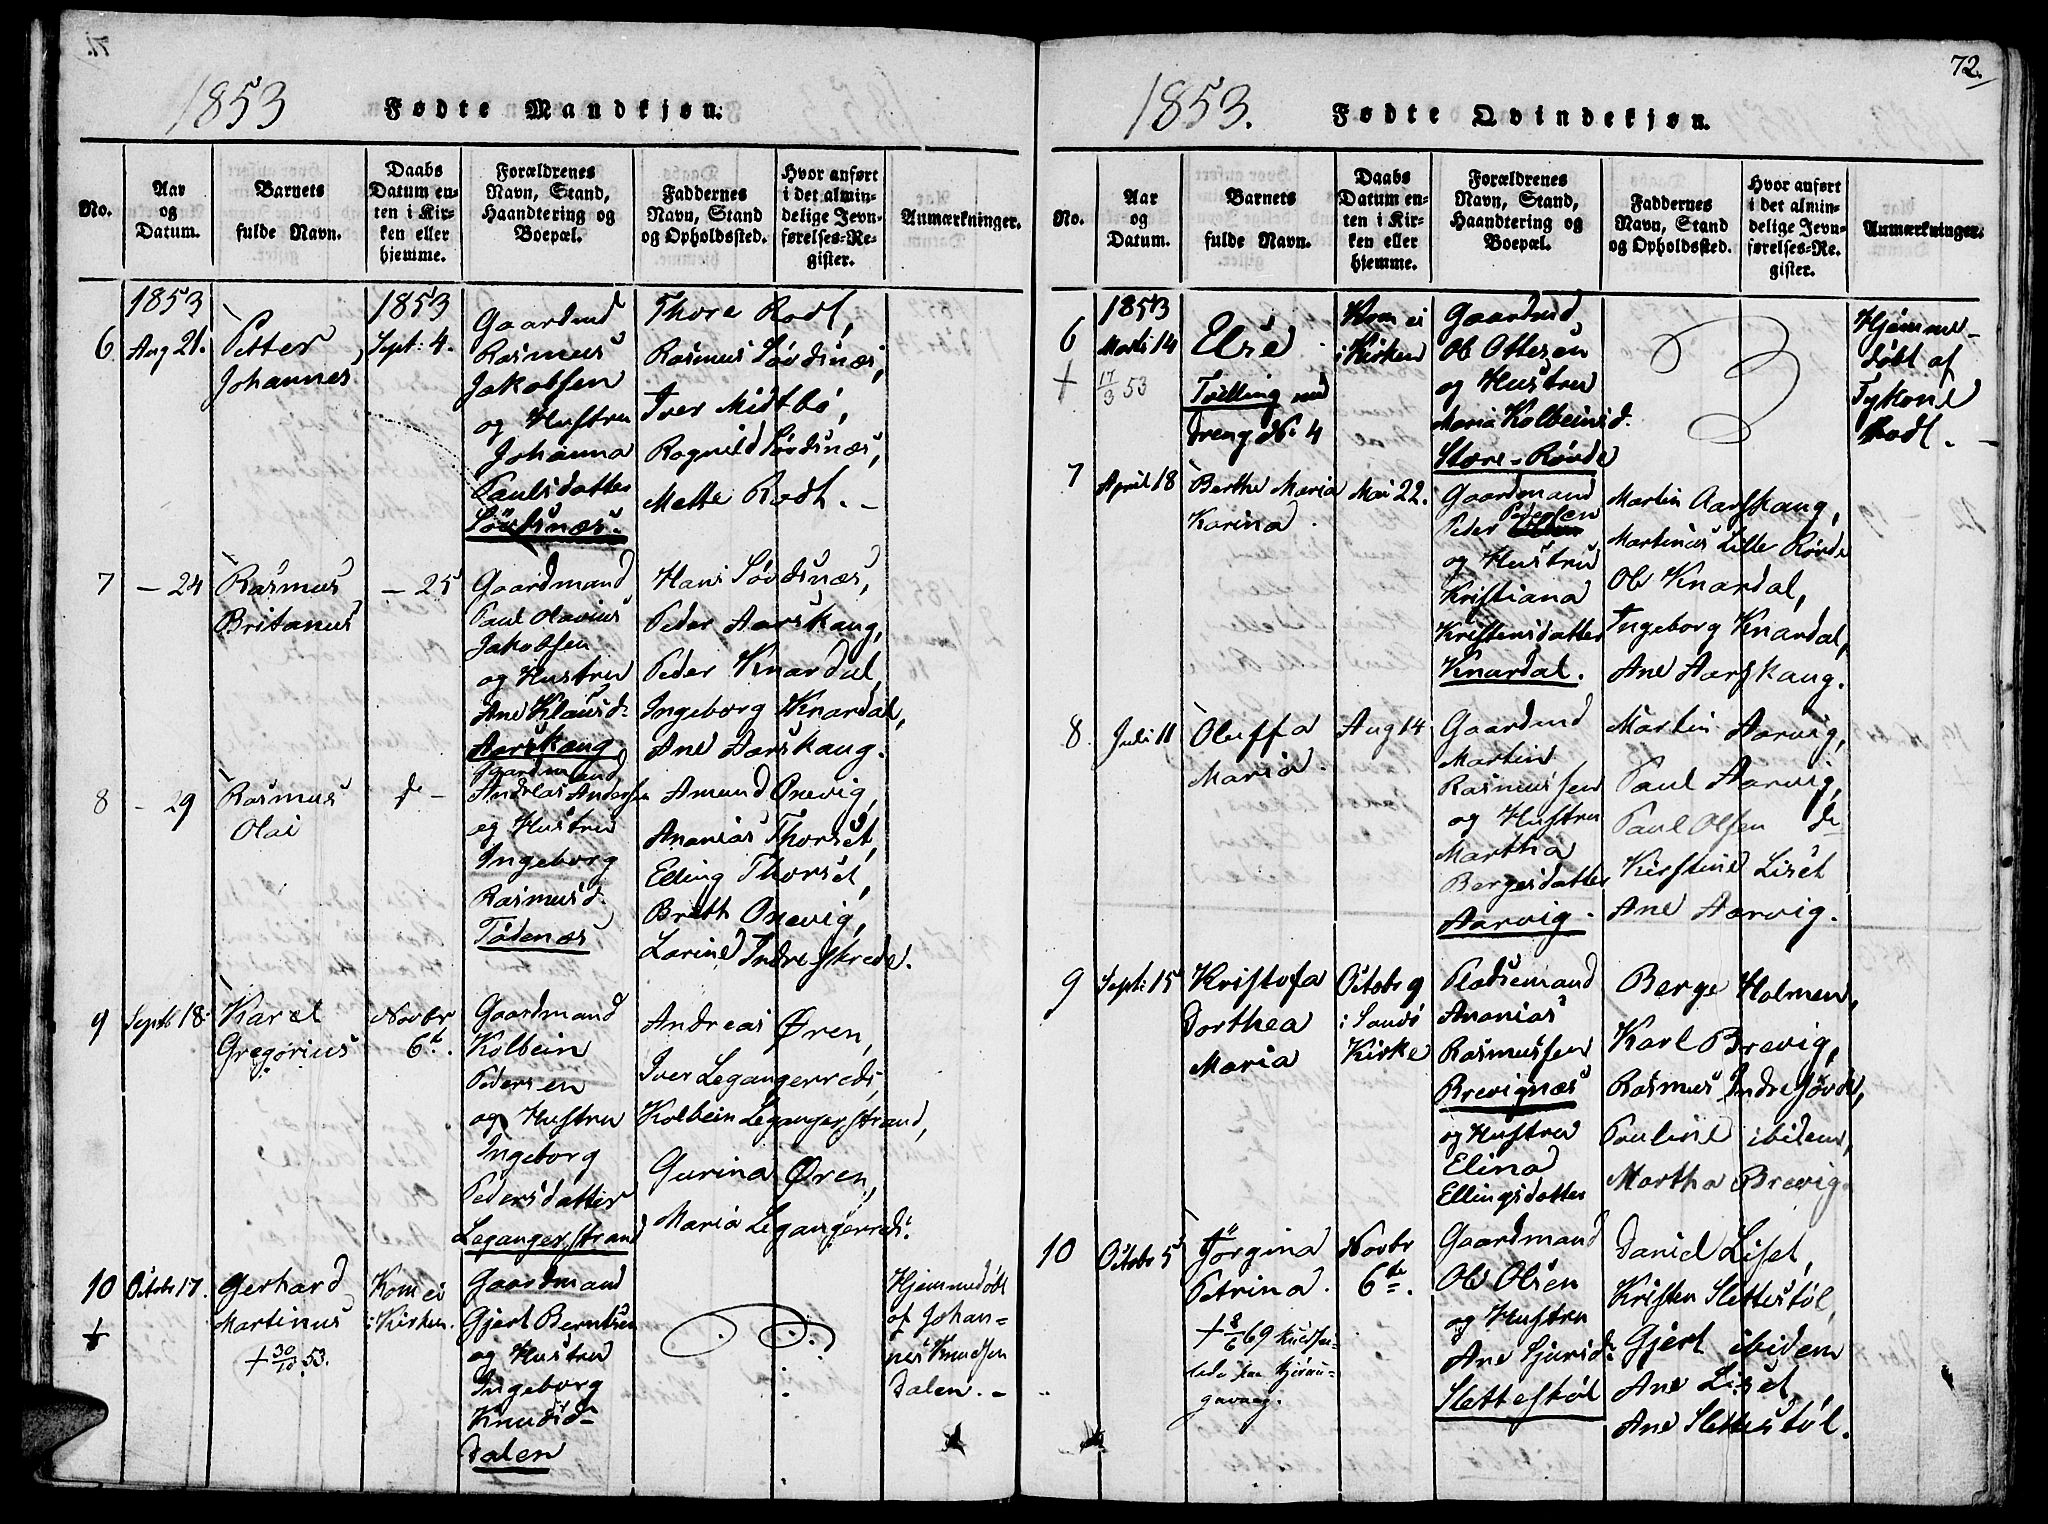 71.
1853
Fødte Mandkjøn.
No.
Aar
og
Datum.
Barnets
fulde Navn.
Daabs
Datum en-
ten i Kir-
ken eller
hjemme.
Forældrenes
Navn, Stand,
Haandtering og
Boepæl.
Faddernes
Navn, Stand
og Opholdssted.
Hvor anført
i det almin-
delige Jevn-
førelses-Re-
gister.
Anmærkninger.
1853
6 Aug 21.
Petter
Johannes
1853
Sept: 4.
Gaardmd
Rasmus
Jakobsen
og Hustru
Johanna
Paulsdatter
Sövdsnæs.
Thore Rodt,
Rasmus Sövdsnæs,
Iver Midtbö,
Ragnild Sövdsnæs,
Mette Rodt. -
7 - 24
Rasmus
Britanus
- 25
Gaardmand
Paul Olavius
Jakobsen
og Hustru
Ane Klausd.
Aarskaug
Hans Sövdsnæs,
Peder Aarskaug,
Peder Knardal,
Ingeborg Knardal,
Ane Aarskaug.
8 - 29
Rasmus
Olai
d -
Gaardmand
Andreas Anders
og Hustru
Ingeborg
Rasmusd.
Tödenæs
Amund Onevig,
Ananias Thorset,
Elling Thorset,
Brith Onevig,
Larine Indreskrede.
9 Septb 18.
Karel
Gregorius
Novbr
6te.
Gaardmand
Kolbein
Pedersen
og Hustru
Ingeborg
Pedersdatter
Leganger strand
Andreas Øren,
Iver Legangerreds,
Kolbein Legangerstrand,
Gurina Øren,
Maria Legangerreds.
10 Octobr 17.
Gerhard
Martinus
+ 30/10 53.
Kom ei
i Kirken.
Gaardmand
Gjert Berntsen
og Hustru
Ingeborg
Knudsd.
Dalen
Hjemmedöbt
af Johan-
nes Knudsen
Dalen. -
72.
1853.
Fødte Qvindekjøn.
No.
Aar
og
Datum.
Barnets
fulde Navn.
Daabs
Datum en-
ten i Kir-
ken eller
hjemme.
Forældrenes
Navn, Stand,
Haandtering og
Boepæl.
Faddernes
Navn, Stand
og Opholdssted.
Hvor anført
i det almin-
delige Jevn-
førelses-Re-
gister.
Anmærkninger.
1853
6 Marts 14
+ 17/3 53
Else
Tvilling med
Dreng No 4
Kom ei
i Kirken
Gaardmd
Ole Ottesen
og Hustru
Maria Kolbeinsd.
Støre-Rövde
Hjemme-
döbt af
Tykone
Rodt. -
7 April 18
Berthe Maria
Karina
Mai 22.
Gaardmand
Peder Pedersen
og Hustru
Kristiana
Kristensdatter
Knardal.
Martin Aarskaug,
Martinus Lille Rövde
Ole Knardal,
Ingeborg Knardal,
Ane Aarskaug.
8. Juli 11
Oluffa
Maria.
Aug 14
Gaardmd
Martin
Rasmussen
og Hustru
Martha
Bergesdatter
Aarvig.
Martin Aarvig,
Paul Aarvig,
Paul Olsen do
Kirstine Liset
Ane Aarvig.
9 Sept: 15
Kristofa
Dorthea
Maria
Octobr 9
i Sandö
Kirke
Pladsemand
Ananias
Rasmussen
Brevignæs
og Hustru
Elina
Ellingsdatter
Berge Holmen,
Karl Brevig,
Rasmus Indresövde,
Pauline ibidem,
Martha Brevig.
10 Octobr 5
Jörgina
Petrina.
Novbr
6te.
Gaardmand
Ole Olsen
og Hustru
Ane Sjursd.
Slettestöl
Daniel Liset,
Kristen Slettestöl,
Gjert ibidem
Ane Liset,
Ane Slettestöl.